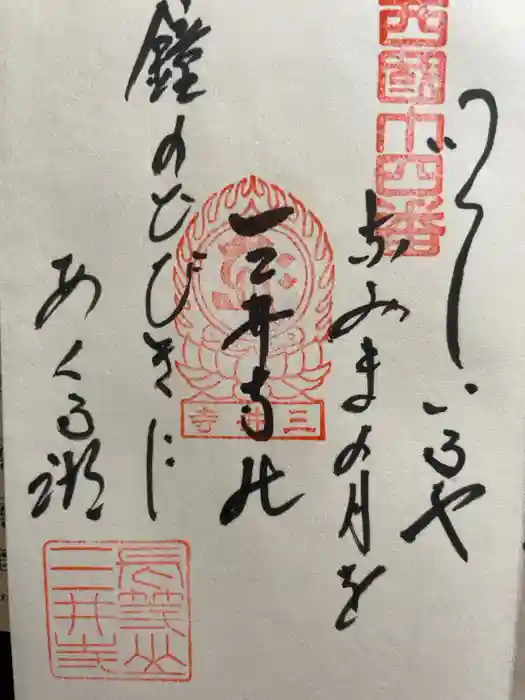 西国十四番
いでいるや
なみまの月を
三井寺の
鐘のひびきに
あくる湖
三井寺
長等山
三井寺